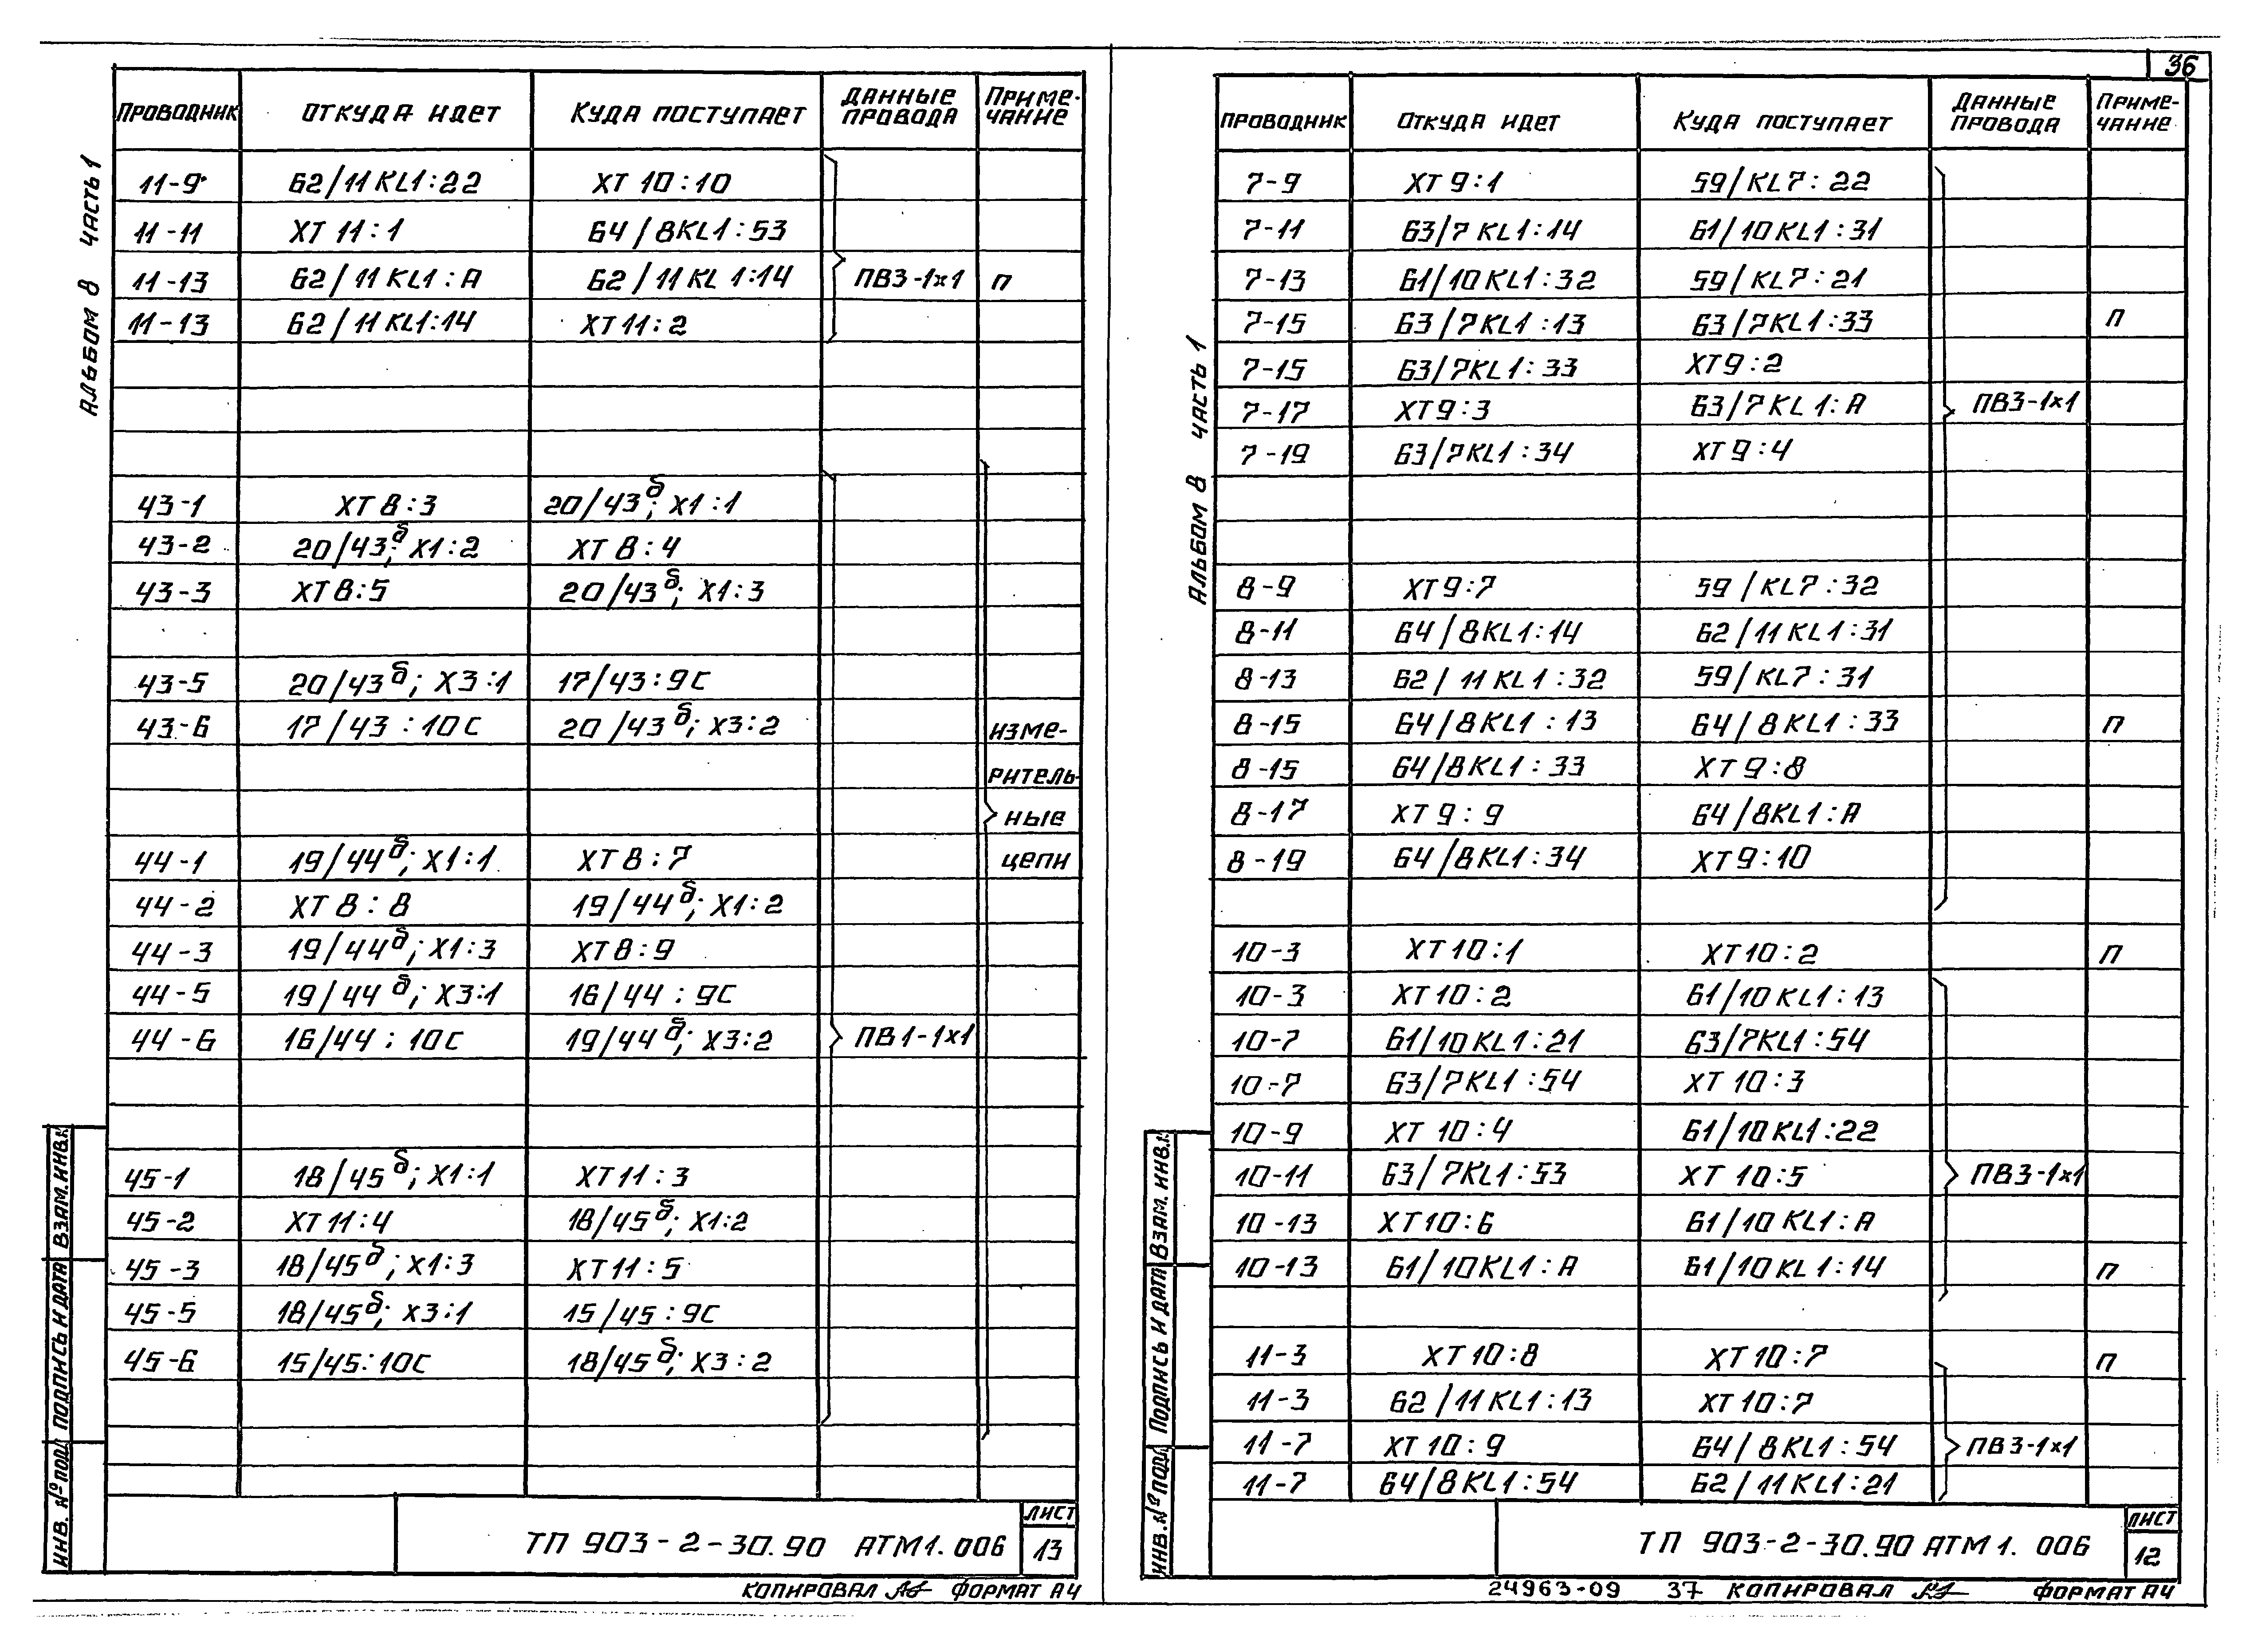 Альбом 8 часть 1
Проводник Откуда идет Куда поступает Данные провода Приме-чание
11-9 62/11KL1:22 XT10:10
11-11 XT11:1 64/8KL1:53
11-13 62/11KL1:A 62/11KL1:14 ПВ3-1×1 п
11-13 62/11KL1:14 XT11:2
43-1 XT8:3 20/43б; X1:1
43-2 20/43б; X1:2 XT8:4
43-3 XT8:5 20/43б; X1:3
43-5 20/43б; X3:1 17/43:9С
43-6 17/43:10С 20/43б; X3:2 измe-
ритель-
ные
44-1 19/44б; X1:1 XT8:7 цепи
44-2 XT8:8 19/44б; X1:2
44-3 19/44б; X1:3 XT8:9
44-5 19/44б; X3:1 16/44:9С
44-6 16/44:10С 19/44б; X3:2 ПВ1-1×1
45-1 18/45б; X1:1 XT11:3
45-2 XT11:4 18/45б; X1:2
45-3 18/45б; X1:3 XT11:5
45-5 18/45б; X3:1 15/45:9С
45-6 15/45:10С 18/45б; X3:2
Инв. № подл Подпись и дата Взам. инв.№
ТП 903-2-30.90 АТМ1.006 Лист 13
Копировал Формат А4
36
Альбом 8 часть 1
Проводник Откуда идет Куда поступает Данные провода Приме-чание
7-9 XT9:1 59/KL7:22
7-11 63/7KL1:14 61/10KL1:31
7-13 61/10KL1:32 59/KL7:21
7-15 63/7KL1:13 63/7KL1:33 п
7-15 63/7KL1:33 XT9:2
7-17 XT9:3 63/7KL1:A ПВ3-1×1
7-19 63/7KL1:34 XT9:4
8-9 XT9:7 59/KL7:32
8-11 64/8KL1:14 62/11KL1:31
8-13 62/11KL1:32 59/KL7:31
8-15 64/8KL1:13 64/8KL1:33 п
8-15 64/8KL1:33 XT9:8
8-17 XT9:9 64/8KL1:A
8-19 64/8KL1:34 XT9:10
10-3 XT10:1 XT10:2 п
10-3 XT10:2 61/10KL1:13
10-7 61/10KL1:21 63/7KL1:54
10-7 63/7KL1:54 XT10:3
10-9 XT10:4 61/10KL1:22
10-11 63/7KL1:53 XT10:5 ПВ3-1×1
10-13 XT10:6 61/10KL1:A
10-13 61/10KL1:A 61/10KL1:14 п
11-3 XT10:8 XT10:7 п
11-3 62/11KL1:13 XT10:7
11-7 XT10:9 64/8KL1:54 ПВ3-1×1
11-7 64/8KL1:54 62/11KL1:21
Инв. № подл Подпись и дата Взам. инв.№
ТП 903-2-30.90 АТМ1.006 Лист 12
24963-09 37 Копировал Формат А4